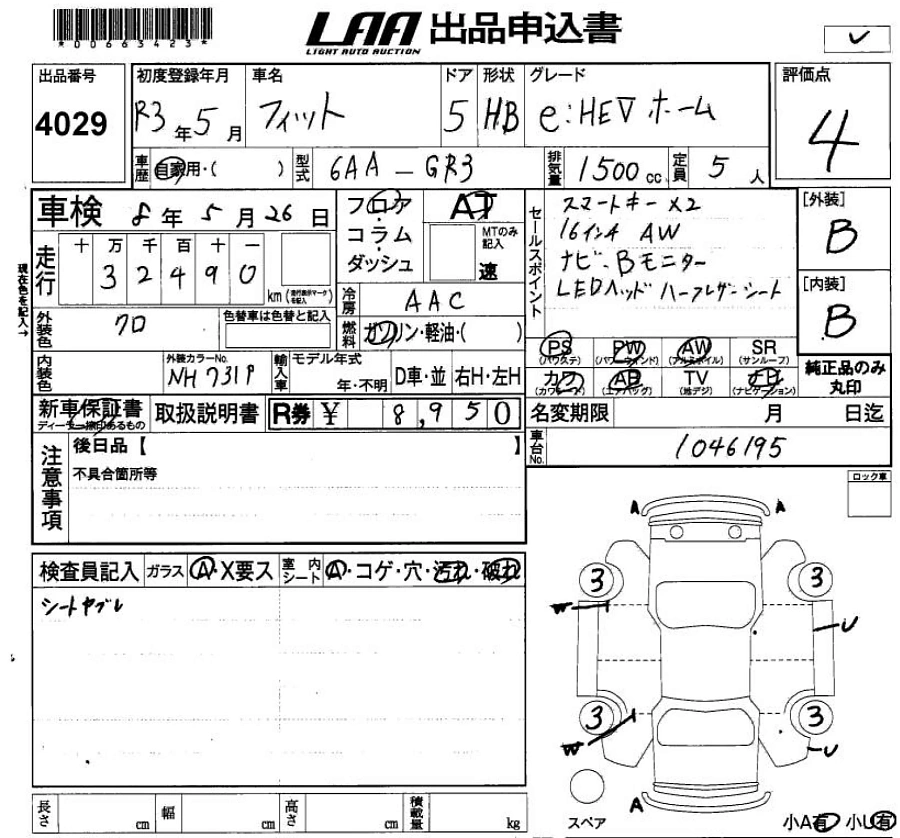 *00663423*
LAA 出品申込書
LIGHT AUTO AUCTION
出品番号 初度登録年月 車名 ドア 形状 グレード 評価点
4029 R3年5月 フィット 5 HB e:HEV ホーム 4
車歴 自家用・( ) 型式 6AA-GR3 排気量 1500cc 定員 5人
車検 8年5月26日
走行 十万千百十一
32490 km
(走行表示マークを記入)
現在色を記入→
フロア・コラム・ダッシュ
AT
MTのみ記入
速
セールスポイント
スマートキー×2
16インチ AW
ナビ、Bモニター
LEDヘッド ハーフレザーシート
[外装]
B
[内装]
B
外装色 クロ 色替車は色替と記入
冷房 AAC
燃料 ガソリン・軽油・( )
内装色 外装カラーNo. NH731P 輸入車 モデル年式 年・不明 D車・並 右H・左H
PS (パワステ) PW (パワーウインド) AW (アルミホイル) SR (サンルーフ)
カワ (カワシート) AB (エアバッグ) TV (地デジ) ナビ (ナビゲーション)
純正品のみ丸印
新車保証書 取扱説明書 R券 ¥ 8,950
名変期限 月 日迄
車台No. 1046195
注意事項
後日品【 】
不具合箇所等
ロック車
検査員記入 ガラス A・X要ス 室内シート A・コゲ・穴・汚れ・破れ
シートヤブレ
A A
3 3
W
U
3 3
W
U
A
スペア
小A有 小U有
長さ cm 幅 cm 高さ cm 積載量 kg